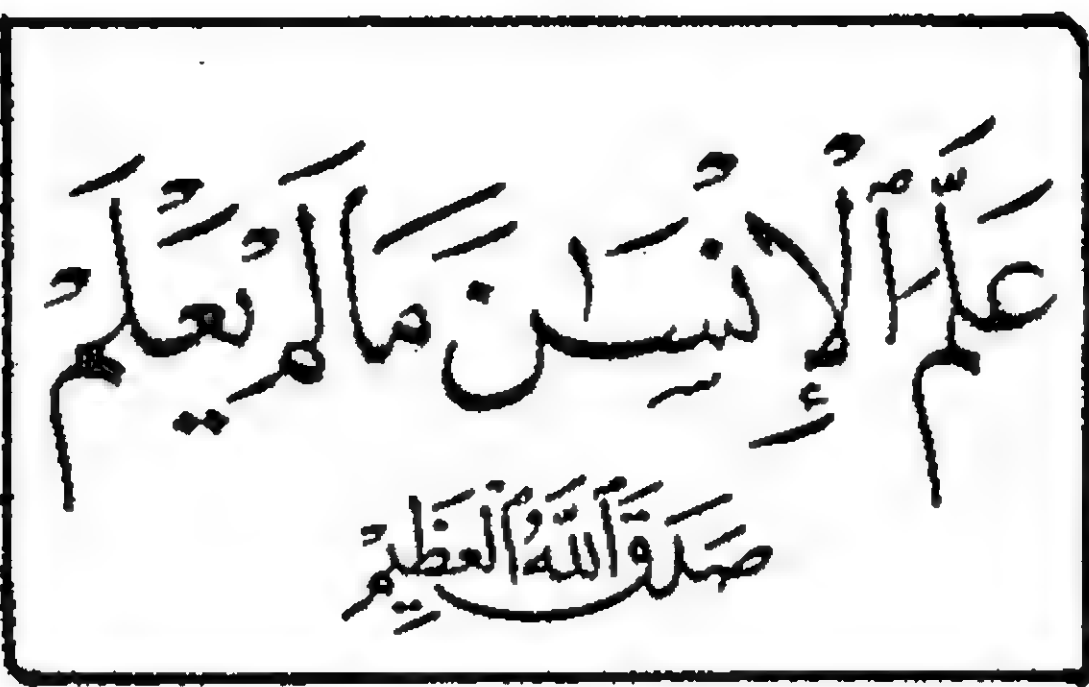 عَلَّمَ ٱلْإِنْسَٰنَ مَا لَمْ يَعْلَمْ
صَدَقَ ٱللَّهُ ٱلْعَظِيمْ